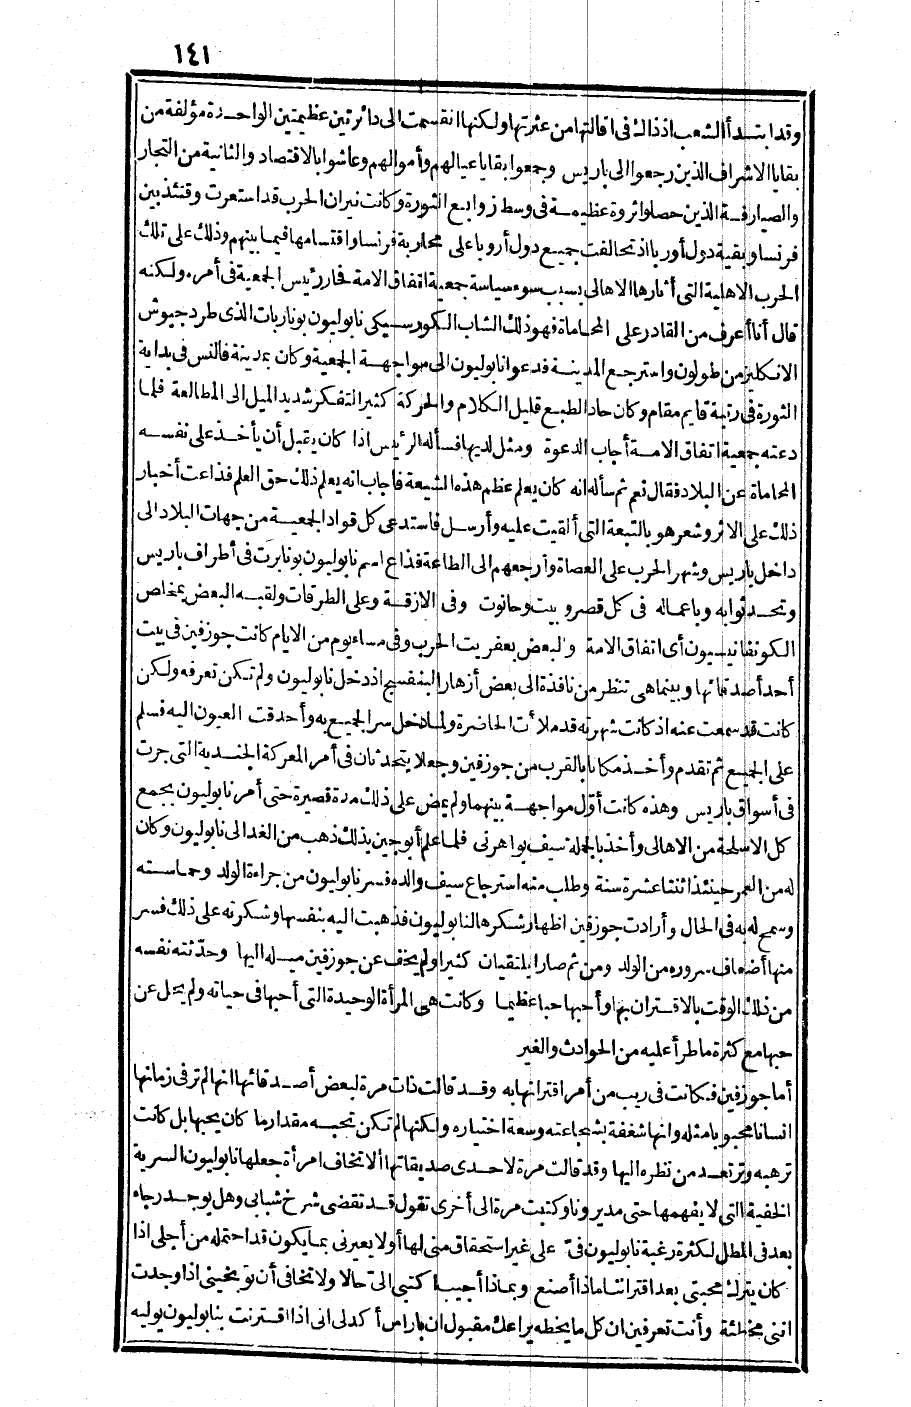 ١٤١
وقد ابتدأ الشعب اذ ذاك فى اقالتها من عثرتها ولكنها انقسمت الى دائرتين عظيمتين الواحدة مؤلفة من
بقايا الاشراف الذين رجعوا الى باريس وجمعوا بقايا عيالهم وأموالهم وعاشوا بالاقتصاد والثانية من التجار
والصيارفة الذين حصلوا ثروة عظيمة فى وسط زوابع الثورة وكانت نيران الحرب قد استعرت وقتئذ بين
فرنسا وبقية دول أوربا اذ تحالفت جميع دول أروبا على محاربة فرنسا واقتسامها فيما بينهم وذلك على تلك
الحرب الاهلية التى أثارها الاهالى بسبب سوء سياسة جمعية اتفاق الامة فحار رئيس الجمعية فى أمره ولكنه
قال أنا أعرف من القادر على المحاماة فهو ذلك الشاب الكورسيكى نابوليون بونابرات الذى طرد جيوش
الانكليز من طولون واسترجع المدينة فدعوا نابوليون الى مواجهة الجمعية وكان بمدينة فالنس فى بداية
الثورة فى رتبة قايم مقام وكان حاد الطبع قليل الكلام والحركة كثير التفكر شديد الميل الى المطالعة فلما
دعته جمعية اتفاق الامة أجاب الدعوة ومثل لديها فسأله الرئيس اذا كان يقبل أن يأخذ على نفسه
المحاماة عن البلاد فقال نعم ثم سأله انه كان يعلم عظم هذه الشيعة فاجاب انه يعلم ذلك حق العلم فذاعت أخبار
ذلك على الاثر وشعر هو بالتبعة التى ألقيت عليه وأرسل فاستدعى كل قواد الجمعية من جهات البلاد الى
داخل باريس وشهر الحرب على العصاة وأرجعهم الى الطاعة فذاع اسم نابوليون بونابرت فى أطراف باريس
وتحدثوا به وباعماله فى كل قصر وبيت وحانوت وفى الازقة وعلى الطرقات ولقبه البعض بمخلص
الكونفانيسيون أى اتفاق الامة والبعض بعفريت الحرب وفى مساء يوم من الايام كانت جوزفين فى بيت
أحد أصدقائها وبينما هى تنظر من نافذة الى بعض أزهار البنفسج اذ دخل نابوليون ولم تكن تعرفه ولكن
كانت قد سمعت عنه اذ كانت شهرته قد ملأت الحاضرة ولما دخل سر الجميع به وأحدقت العيون اليه فسلم
على الجميع ثم تقدم وأخذ مكانا بالقرب من جوزفين وجعلا يتحدثان فى أمر المعركة الجندية التى جرت
فى أسواق باريس وهذه كانت أول مواجهة بينهما ولم يمض على ذلك مدة قصيرة حتى أمر نابوليون بجمع
كل الاسلحة من الاهالى وأخذ بالجملة سيف بواهرنى فلما علم أبوجين بذلك ذهب من الغد الى نابوليون وكان
له من العمر حينئذ اثنتا عشرة سنة وطلب منه استرجاع سيف والده فسر نابوليون من جراءة الولد وحماسته
وسمح له به فى الحال وأرادت جوزفين اظهار شكرها لنابوليون فذهبت اليه بنفسها وشكرته على ذلك فسر
منها أضعاف سروره من الولد ومن ثم صارا يلتقيان كثيرا ولم يخف عن جوزفين ميله اليها وحدثته نفسه
من ذلك الوقت بالاقتران بها وأحبها حبا عظيما وكانت هى المرأة الوحيدة التى أحبها فى حياته ولم يحل عن
حبها مع كثرة ما طرأ عليه من الحوادث والغير
أما جوزفين فكانت فى ريب من أمر اقترانها به وقد قالت ذات مرة لبعض أصدقائها انها لم تر فى زمانها
انسانا محبوبا مثله وانها شغفة بشجاعته وسعة اختياره ولكنها لم تكن تحبه مقدار ما كان يحبها بل كانت
ترهبه وترتعد من نظره اليها وقد قالت مرة لاحدى صديقاتها ألا تخاف امرأة جعلها نابوليون السرية
الخفية التى لا يفهمها حتى مديرونا وكتبت مرة الى أخرى تقول قد تقضى شرخ شبابى وهل يوجد رجاء
بعد فى المطل لكثرة رغبة نابوليون فىّ على غير استحقاق منى لها أولا يعيرنى بما يكون قد احتمله من أجلى اذا
كان يترك محبتى بعد اقتراننا ماذا أصنع وبماذا أجيب اكتبى الىّ حالا ولا تخافى أن توبخينى اذا وجدت
اننى مخطئة وأنت تعرفين ان كل ما يخطه يراعك مقبول ان باراس أكد لى انى اذا اقترنت بنابوليون يوليه